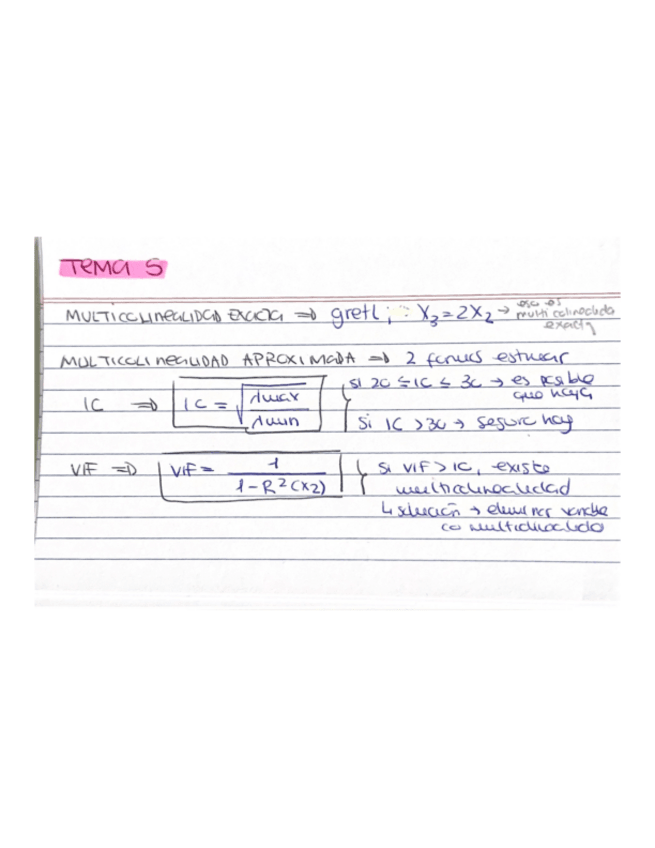 TEMA 5
MULTICOLINEALIDAD EXACTA ⇒ gretl ; X₃=2X₂ → eso es
multicolinealidad
exacta
MULTICOLINEALIDAD APROXIMADA ⇒ 2 formas estimar
IC ⇒ IC = √(λmax / λmin) { si 20 ≤ IC ≤ 30 → es posible
que haya
Si IC > 30 → seguro hay
VIF ⇒ VIF = 1 / (1 - R²(X2)) { Si VIF > 10, existe
multicolinealidad
↳ solución → eliminar variable
co multicolinealidad